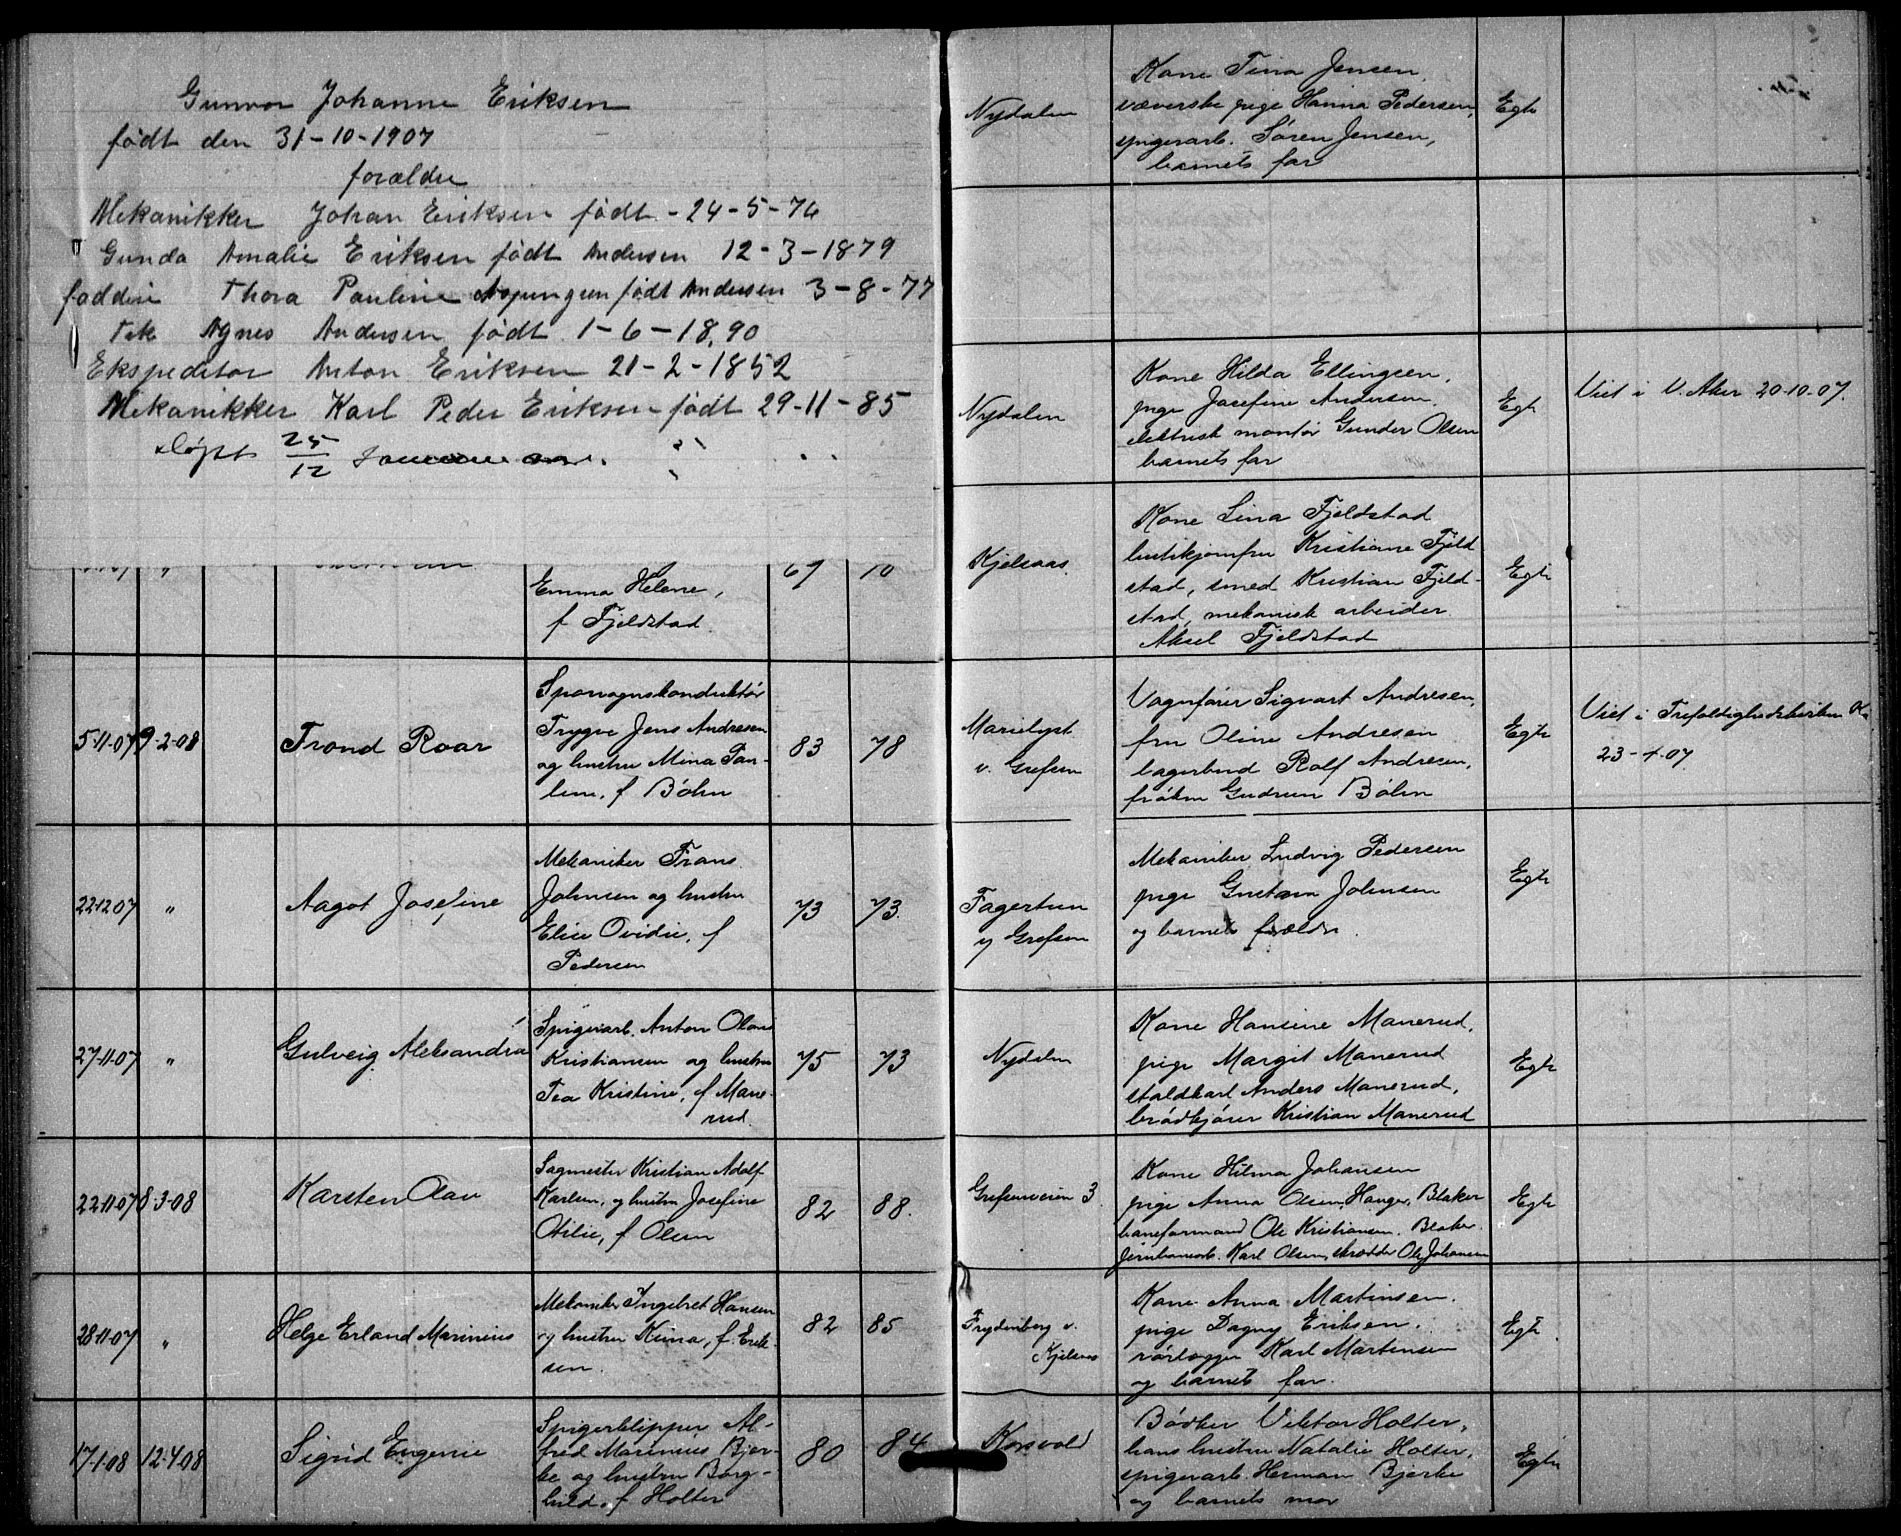 Gunvor Johanne Eriksen
født den 31-10-1907
forældre
Mekanikker Johan Eriksen født - 24-5-76
" Gunda Amalie Eriksen født Andersen 12-3-1879
faddere Thora Pauline født Andersen 3-8-77
Frk Agnes Andersen født 1-6-1890
Ekspeditør Anton Eriksen 21-2-1852
Mekanikker Karl Peder Eriksen født 29-11-85
døpt 25/12
67 10
Emma Helene,
f Fjeldstad.
5-11-07 9-2-08 Trond Roar
Sporvognskonduktør
Trygve Jens Andresen
og hustru Mina Pau-
line, f Bøhn
83 78
22-12-07 " Aagot Josefine
Mekaniker Frans
Johnsen og hustru
Elise Ovidie, f
Pedersen
73 73.
27-11-07 " Gulveig Aleksandra
Spigerarb. Anton Olaus
Kristiansen og hustru
Tea Kristine, f Mane-
rud.
75 73
22-11-07 8-3-08 Karsten Olav
Sagmester Kristian Adolf
Karlsen, og hustru Josefine
Otilie, f Olsen
82 88.
28-11-07 " Helge Erland Marinius
Mekaniker Ingebret Hansen
og hustru Kima, f. Erik-
sen.
82 85
17-1-08 12-4-08 Sigrid Eugenie
Spigerklipper Al-
fred Marinius Bjer-
ke og hustru Borg-
hild, f Holter
80 84
Nydalen
Kone Tina Jensen,
væverske pige Hanna Pedersen,
spigerarb. Søren Jensen,
barnets far
Egte
Nydalen
Kone Hilda Ellingsen,
pige Josefine Andersen.
elektrisk montør Gunder Olsen
barnets far
Egte
Viet i V. Aker 20-10-07.
Kjelsaas
Kone Lina Fjeldstad
butikjomfru Kristiane Fjeld
stad, smed Kristian Fjeld-
stad, mekanisk arbeider
Aksel Fjeldstad
Egte
Marielyst
v. Grefsen
Vognfører Sigvart Andresen,
fru Oline Andresen
lagerbud Rolf Andresen,
frøken Gudrun Bøhn
Egte
Viet i Trefoldighedskirken K.
23-4-07.
Fagertun
v/ Grefsen
Mekaniker Ludvig Pedersen
pige Gustava Johnsen
og barnets forældre.
Egte
Nydalen
Kone Hansine Manerud,
pige Margit Manerud
staldkarl Anders Manerud,
brødkjører Kristian Manerud
Egte
Grefsenveien 3.
Kone Hilma Johansen
pige Anna Olsen, Hauger, Blaker
baneformand Ole Kristiansen, Blaker.
Jernbanearb. Karl Olsen, skrædder Ole Johansen
Egte
Frydenberg v.
Kjelsaas
Kone Anna Martinsen.
pige Dagny Eriksen.
rørlægger Karl Martinsen
og barnets far.
Egte
Korsvold
Bødker Viktor Holter,
hans hustru Natalie Holter,
spigerarb. Herman Bjerke
og barnets mor
Egte